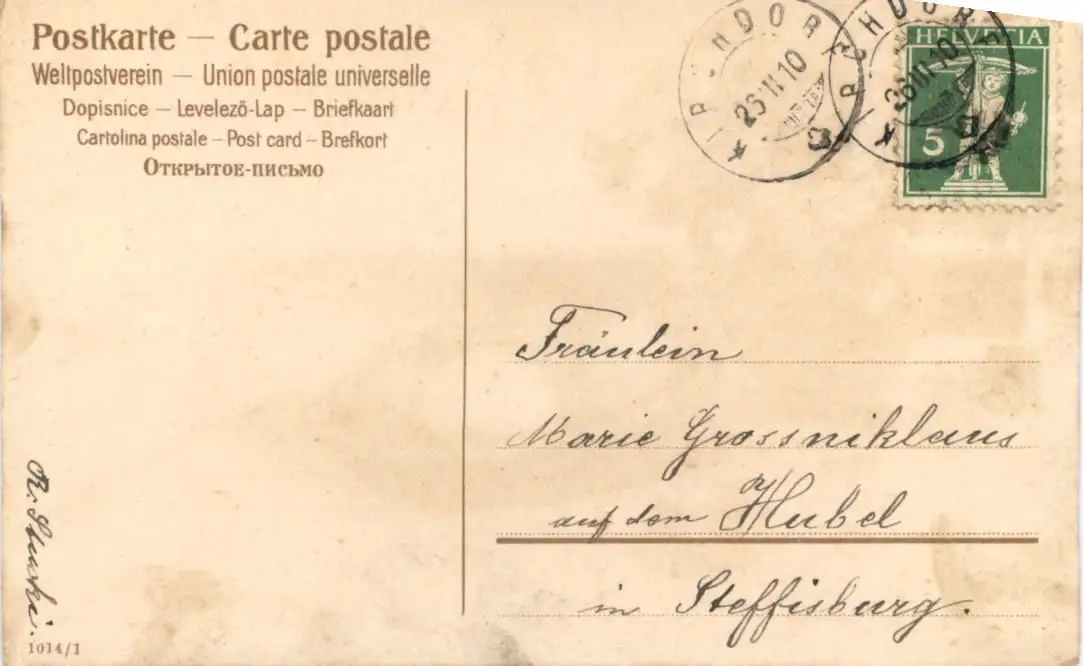 Postkarte — Carte postale
Weltpostverein — Union postale universelle
Dopisnice — Levelező-Lap — Briefkaart
Cartolina postale – Post card – Brefkort
Открытое-письмо
KIRCHDORF
26 III 10
KIRCHDORF
26 III 10
HELVETIA
5
Fräulein
Marie Grossniklaus
auf dem Hubel
in Steffisburg.
1014/1